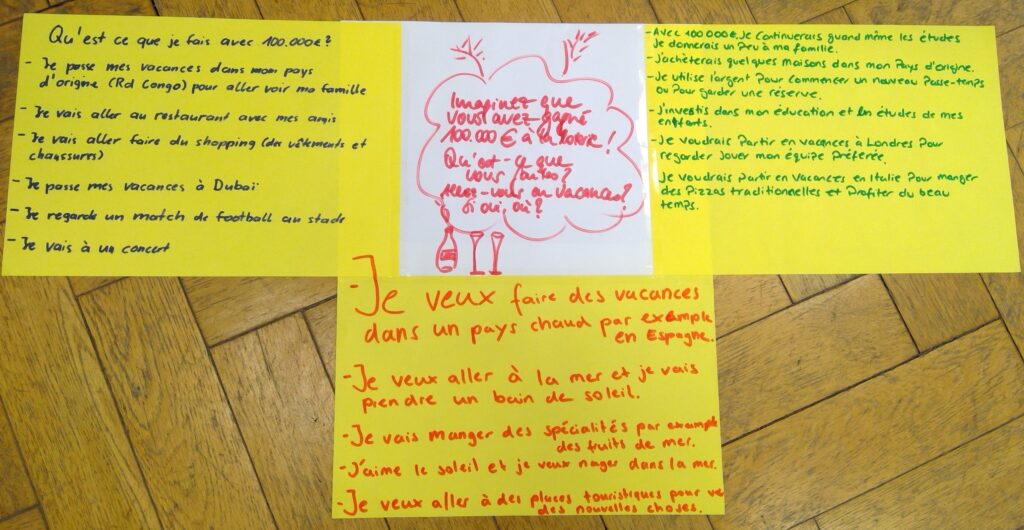 Qu'est ce que je fais avec 100.000€?
- Je passe mes vacances dans mon pays
d'origine (Rd Congo) pour aller voir ma famille
- Je vais aller au restaurant avec mes amis
- Je vais aller faire du shopping (des vêtements et
chaussures)
- Je passe mes vacances à Dubaï
- Je regarde un match de football au stade
- Je vais à un concert
Imaginez que
vous avez gagné
100.000 € à la loterie!
Qu'est-ce que
vous faites?
Allez-vous en vacances?
Si oui, où?
- Avec 100 000€, Je continuerais quand même les études
Je donnerais un Peu à ma famille.
- J'achèterais quelques maisons dans mon Pays d'origine.
- Je utilise l'argent Pour commencer un nouveau Passe-temps
ou Pour garder une réserve.
- J'investis dans mon éducation et en études de mes
enfants.
- Je voudrais Partir en vacances à Londres Pour
regarder Jouer mon équipe Préférée.
Je voudrais Partir en Vacances en Italie Pour manger
des Pizzas traditionnelles et Profiter du beau
temps.
- Je veux faire des vacances
dans un pays chaud par example
en Espagne.
- Je veux aller à la mer et je vais
prendre un bain de soleil.
- Je vais manger des spécialités par example
des fruits de mer.
- J'aime le soleil et je veux nager dans la mer.
- Je veux aller à des places touristiques pour
des nouvelles choses.